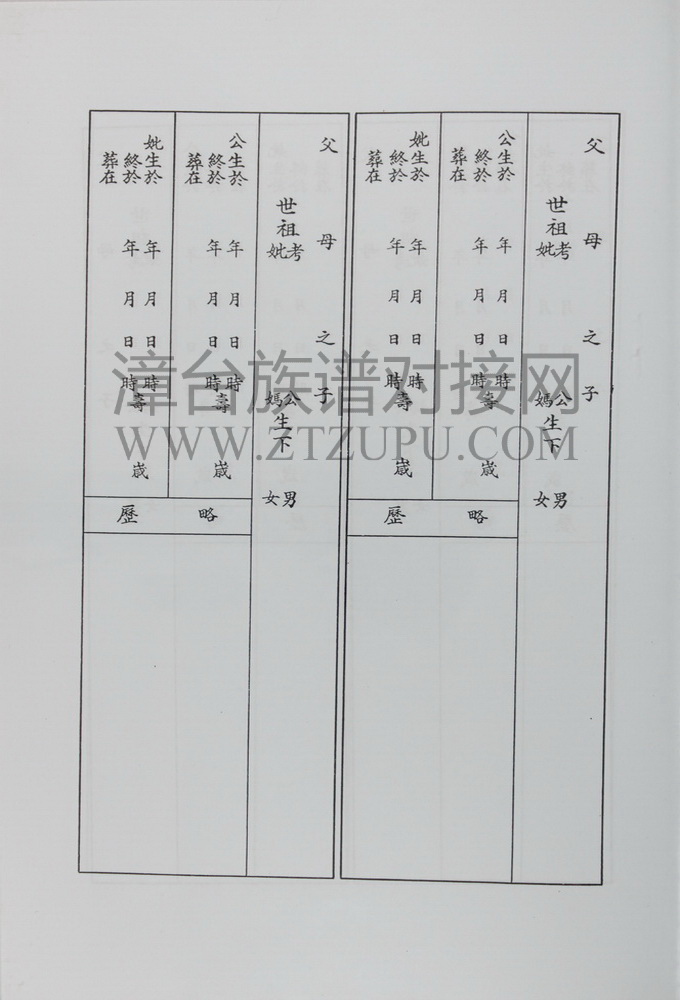 父　母　之　子
世祖考妣　公媽生下　男女
公生於　年　月　日　時
終於　年　月　日　時壽　歲
葬在
妣生於　年　月　日　時
終於　年　月　日　時壽　歲
葬在
略　歷
父　母　之　子
世祖考妣　公媽生下　男女
公生於　年　月　日　時
終於　年　月　日　時壽　歲
葬在
妣生於　年　月　日　時
終於　年　月　日　時壽　歲
葬在
略　歷
漳台族谱对接网
WWW.ZTZUPU.COM